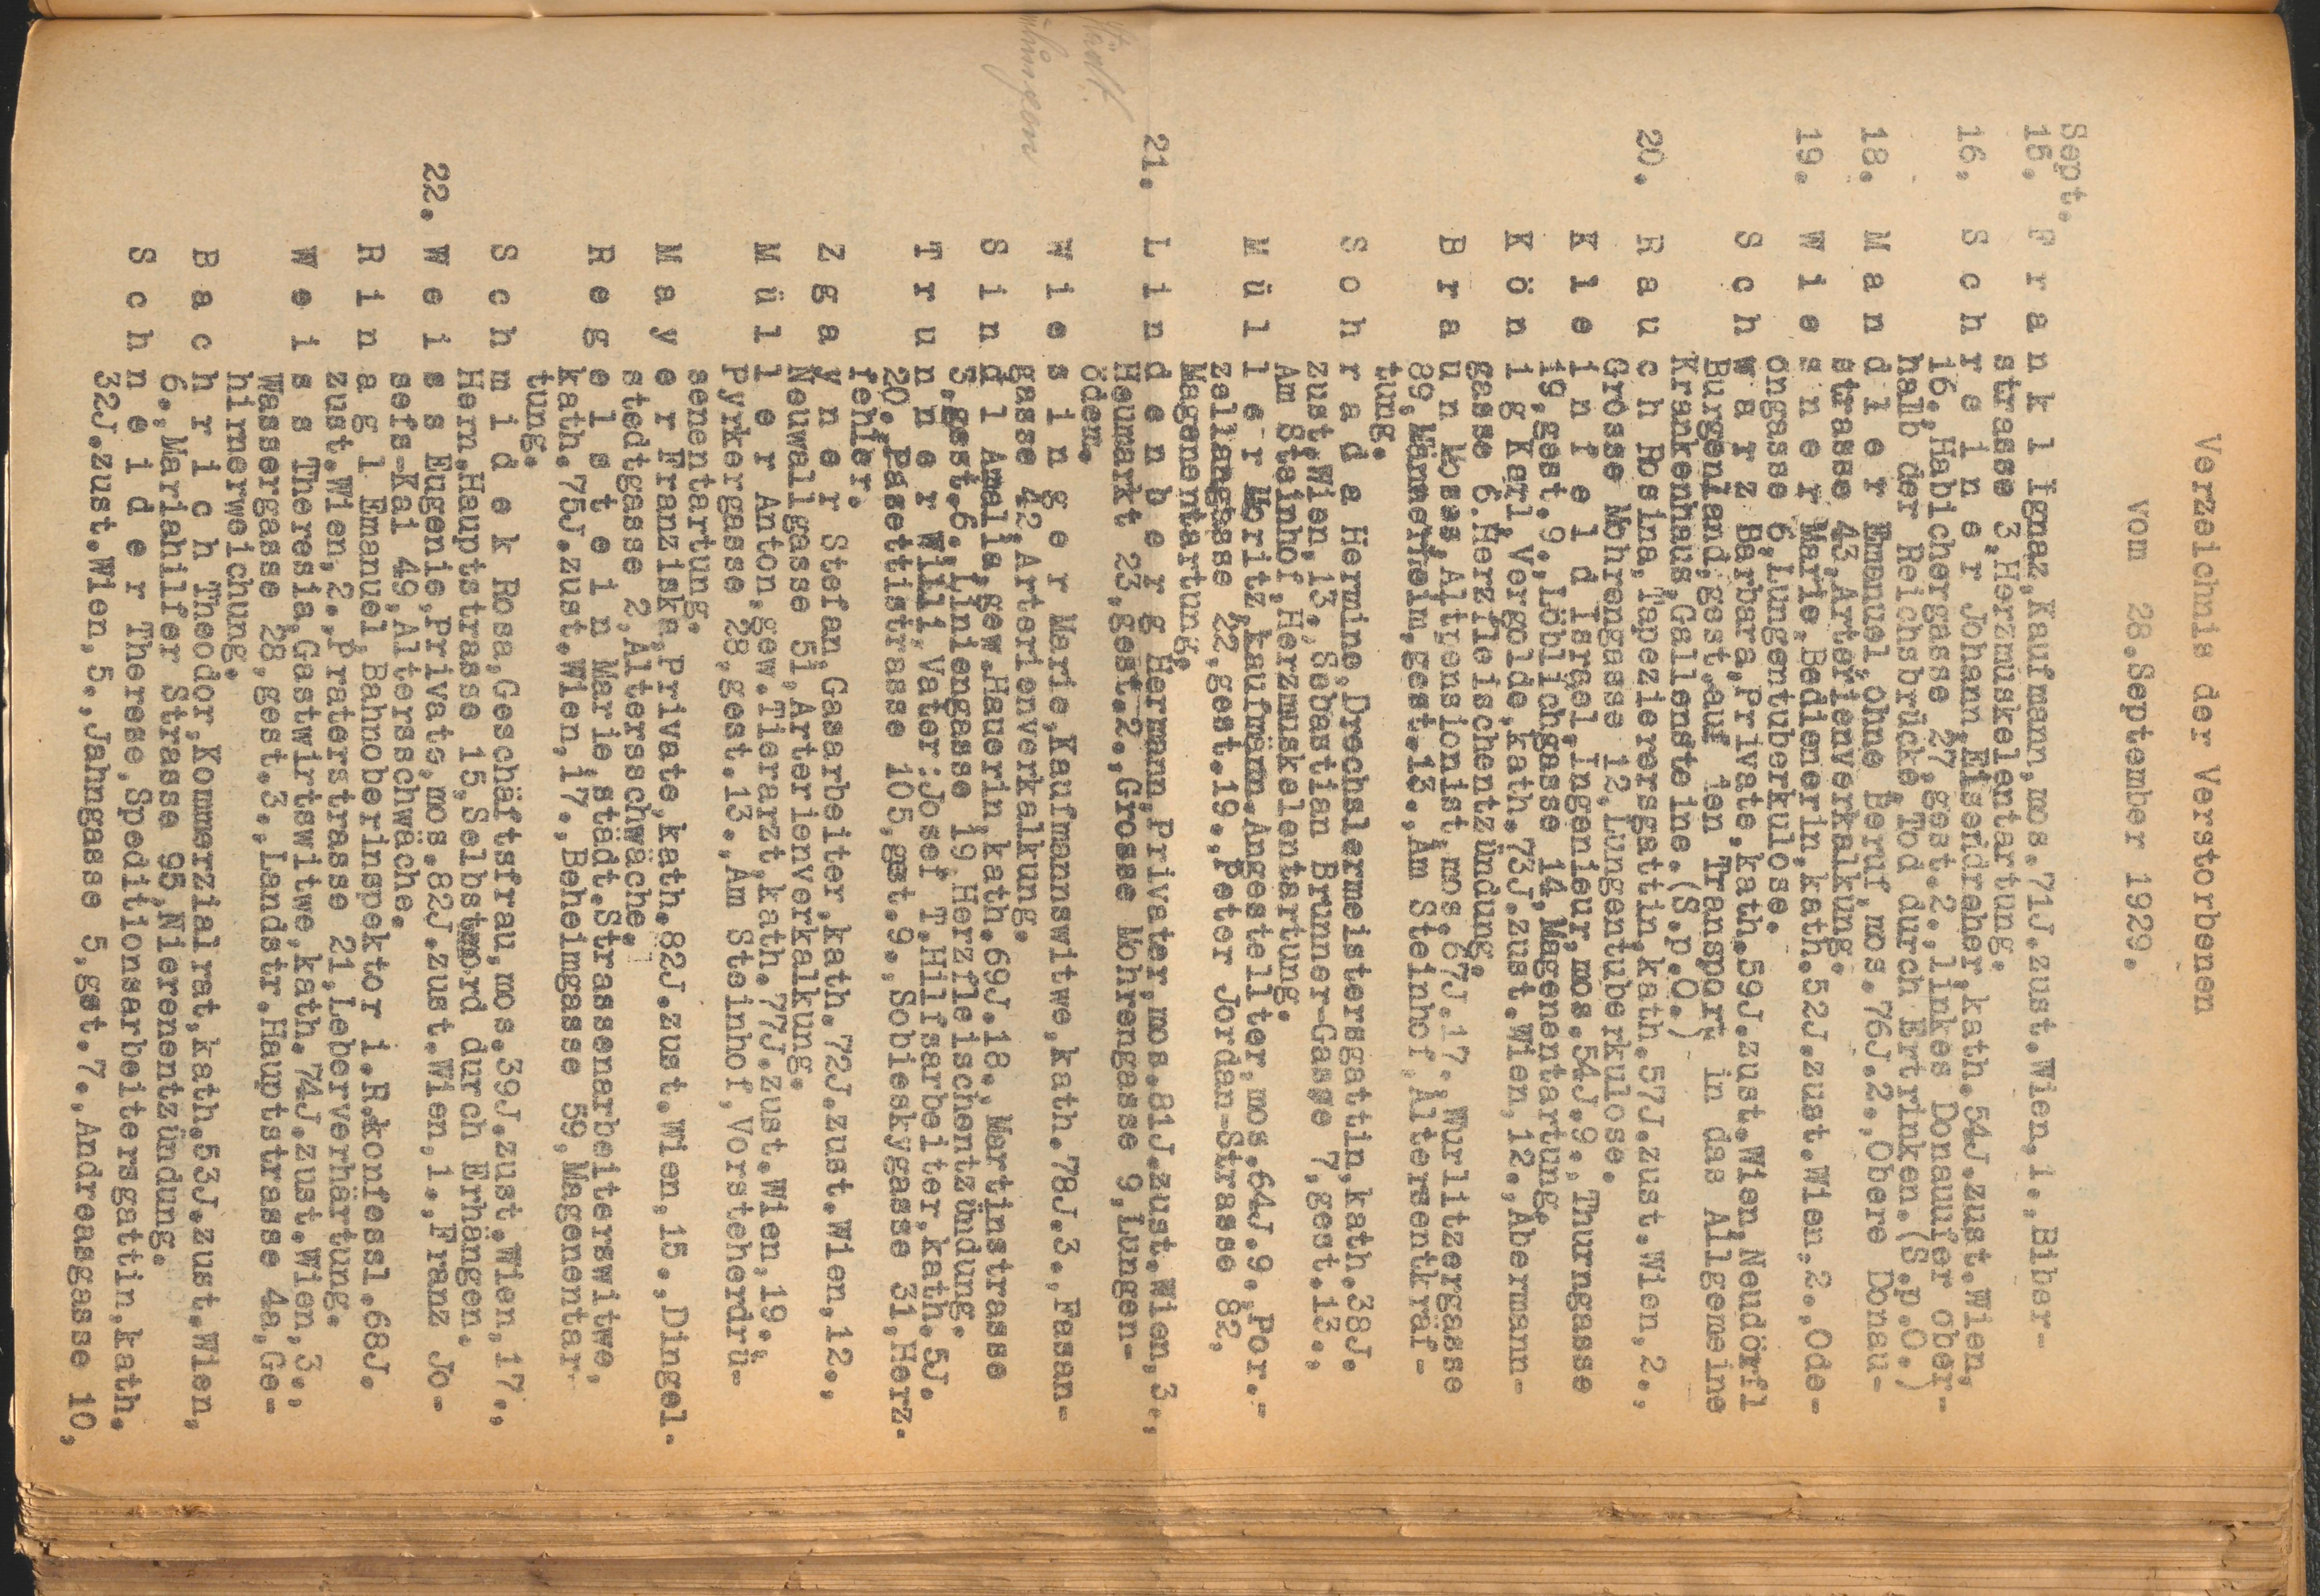 Verzeichnis der Verstorbenen
vom 28.September 1929.
Sept.
15. F r a n k l Ignaz,Kaufmann,mos.71J.zust.Wien,1.,Biber-
strasse 3,Herzmuskelentartung.
16. S c h r e i n e r Johann,Eisendreher,kath.54J.zust.Wien,
16.,Habichergasse 27,gest.2.,linkes Donauufer ober-
halb der Reichsbrücke,Tod durch Ertrinken.(S.p.O.)
18. M a n d l e r Emanuel,ohne Beruf,mos.76J.2.,Obere Donau-
strasse 43,Arterienverkalkung.
19. W i e s n e r Marie,Bedienerin,kath.52J.zust.Wien,2.,Ode-
ongasse 6,Lungentuberkulose.
S c h w a r z Barbara,Private,kath.59J.zust.Wien,Neudörfl
Burgenland,gest.auf den Transport in das Allgemeine
Krankenhaus,Gallensteine.(S.p.O.)
20. R a u c h Rosina,Tapezierersgattin,kath.57J.zust.Wien,2.,
Grosse Mohrengasse 12,Lungentuberkulose.
K l e i n f e l d Israel,Ingenieur,mos.54J.9.,Thurngasse
19,gest.9.,Löblichgasse 14,Magenentartung.
K ö n i g Karl,Vergolde,kath.73J.zust.Wien,12.,Abermann-
gasse 6.Herzfleischentzündung.
B r a u n Moses,Altrensionist,mos.67J.17.,Wurlitzergasse
89,Männerheim,gest.13.,Am Steinhof,Altersentkräf-
tung.
S c h r a d e Hermine,Drechslermeistersgattin,kath.38J.
zust.Wien,13.,Sebastian Brunner-Gasse 7,gest.13.,
Am Steinhof,Herzmuskelentartung.
M ü l l e r Moritz,kaufmänn.Angestellter,mos.64J.9.,Por.-
zellangasse 22,gest.19.,Peter Jordan-Strasse 82,
Magenentartung.
21. L i n d e n b e r g Hermann,Privater,mos.81J.zust.Wien,3.,
Heumarkt 23,gest.2.,Grosse Mohrengasse 9,Lungen-
ödem.
W i e s i n g e r Marie,Kaufmannswitwe,kath.78J.3.,Fasan-
gasse 42,Arterienverkalkung.
S i n d l Amalia,gew.Hauerin,kath.69J.18.,Martinstrasse
3,gest.6.,Liniengasse 19,Herzfleischentzündung.
T r u n n e r Willi,Vater:Josef T.Hilfsarbeiter,kath.5J.
20.,Pasettistrasse 105,gst.9.,Sobieskygasse 31,Herz-
fehler.
Z g a y n e r Stefan,Gasarbeiter,kath.72J.zust.Wien,12.,
Neuwallgasse 51,Arterienverkalkung.
M ü l l e r Anton,gew.Tierarzt,kath.77J.zust.Wien,19.,
Pyrkergasse 28,gest.13.,Am Steinhof,Vorsteherdrü-
senentartung.
M a y e r Franziska,Private,kath.82J.zust.Wien,15.,Dingel-
stedtgasse 2,Altersschwäche.
R e g e l s t e i n Marie,städt.Strassenarbeiterswitwe,
kath.75J.zust.Wien,17.,Beheimgasse 59,Magenentar-
tung.
S c h m i d e k Rosa,Geschäftsfrau,mos.39J.zust.Wien,17.,
Hern.Hauptstrasse 15,Selbstmord durch Erhängen.
22. W e i s s Eugenie,Private,mos.82J.zust.Wien,1.,Franz Jo-
sefs-Kai 49,Altersschwäche.
R i n a g l Emanuel,Bahnoberinspektor i.R.konfessl.68J.
zust.Wien,2.,Praterstrasse 21,Leberverhärtung.
W e i s s Theresia,Gastwirtswitwe,kath.74J.zust.Wien,3.,
Wassergasse 28,gest.3.,Landstr.Hauptstrasse 4a,Ge-
hirnerweichung.
B a c h r i c h Theodor,Kommerzialrat,kath.53J.zust.Wien,
6.,Mariahilfer Strasse 95,Nierenentzündung.
S c h n e i d e r Therese,Speditionsarbeitersgattin,kath.
32J.zust.Wien,5.,Jahngasse 5,gst.7.,Andreasgasse 10,